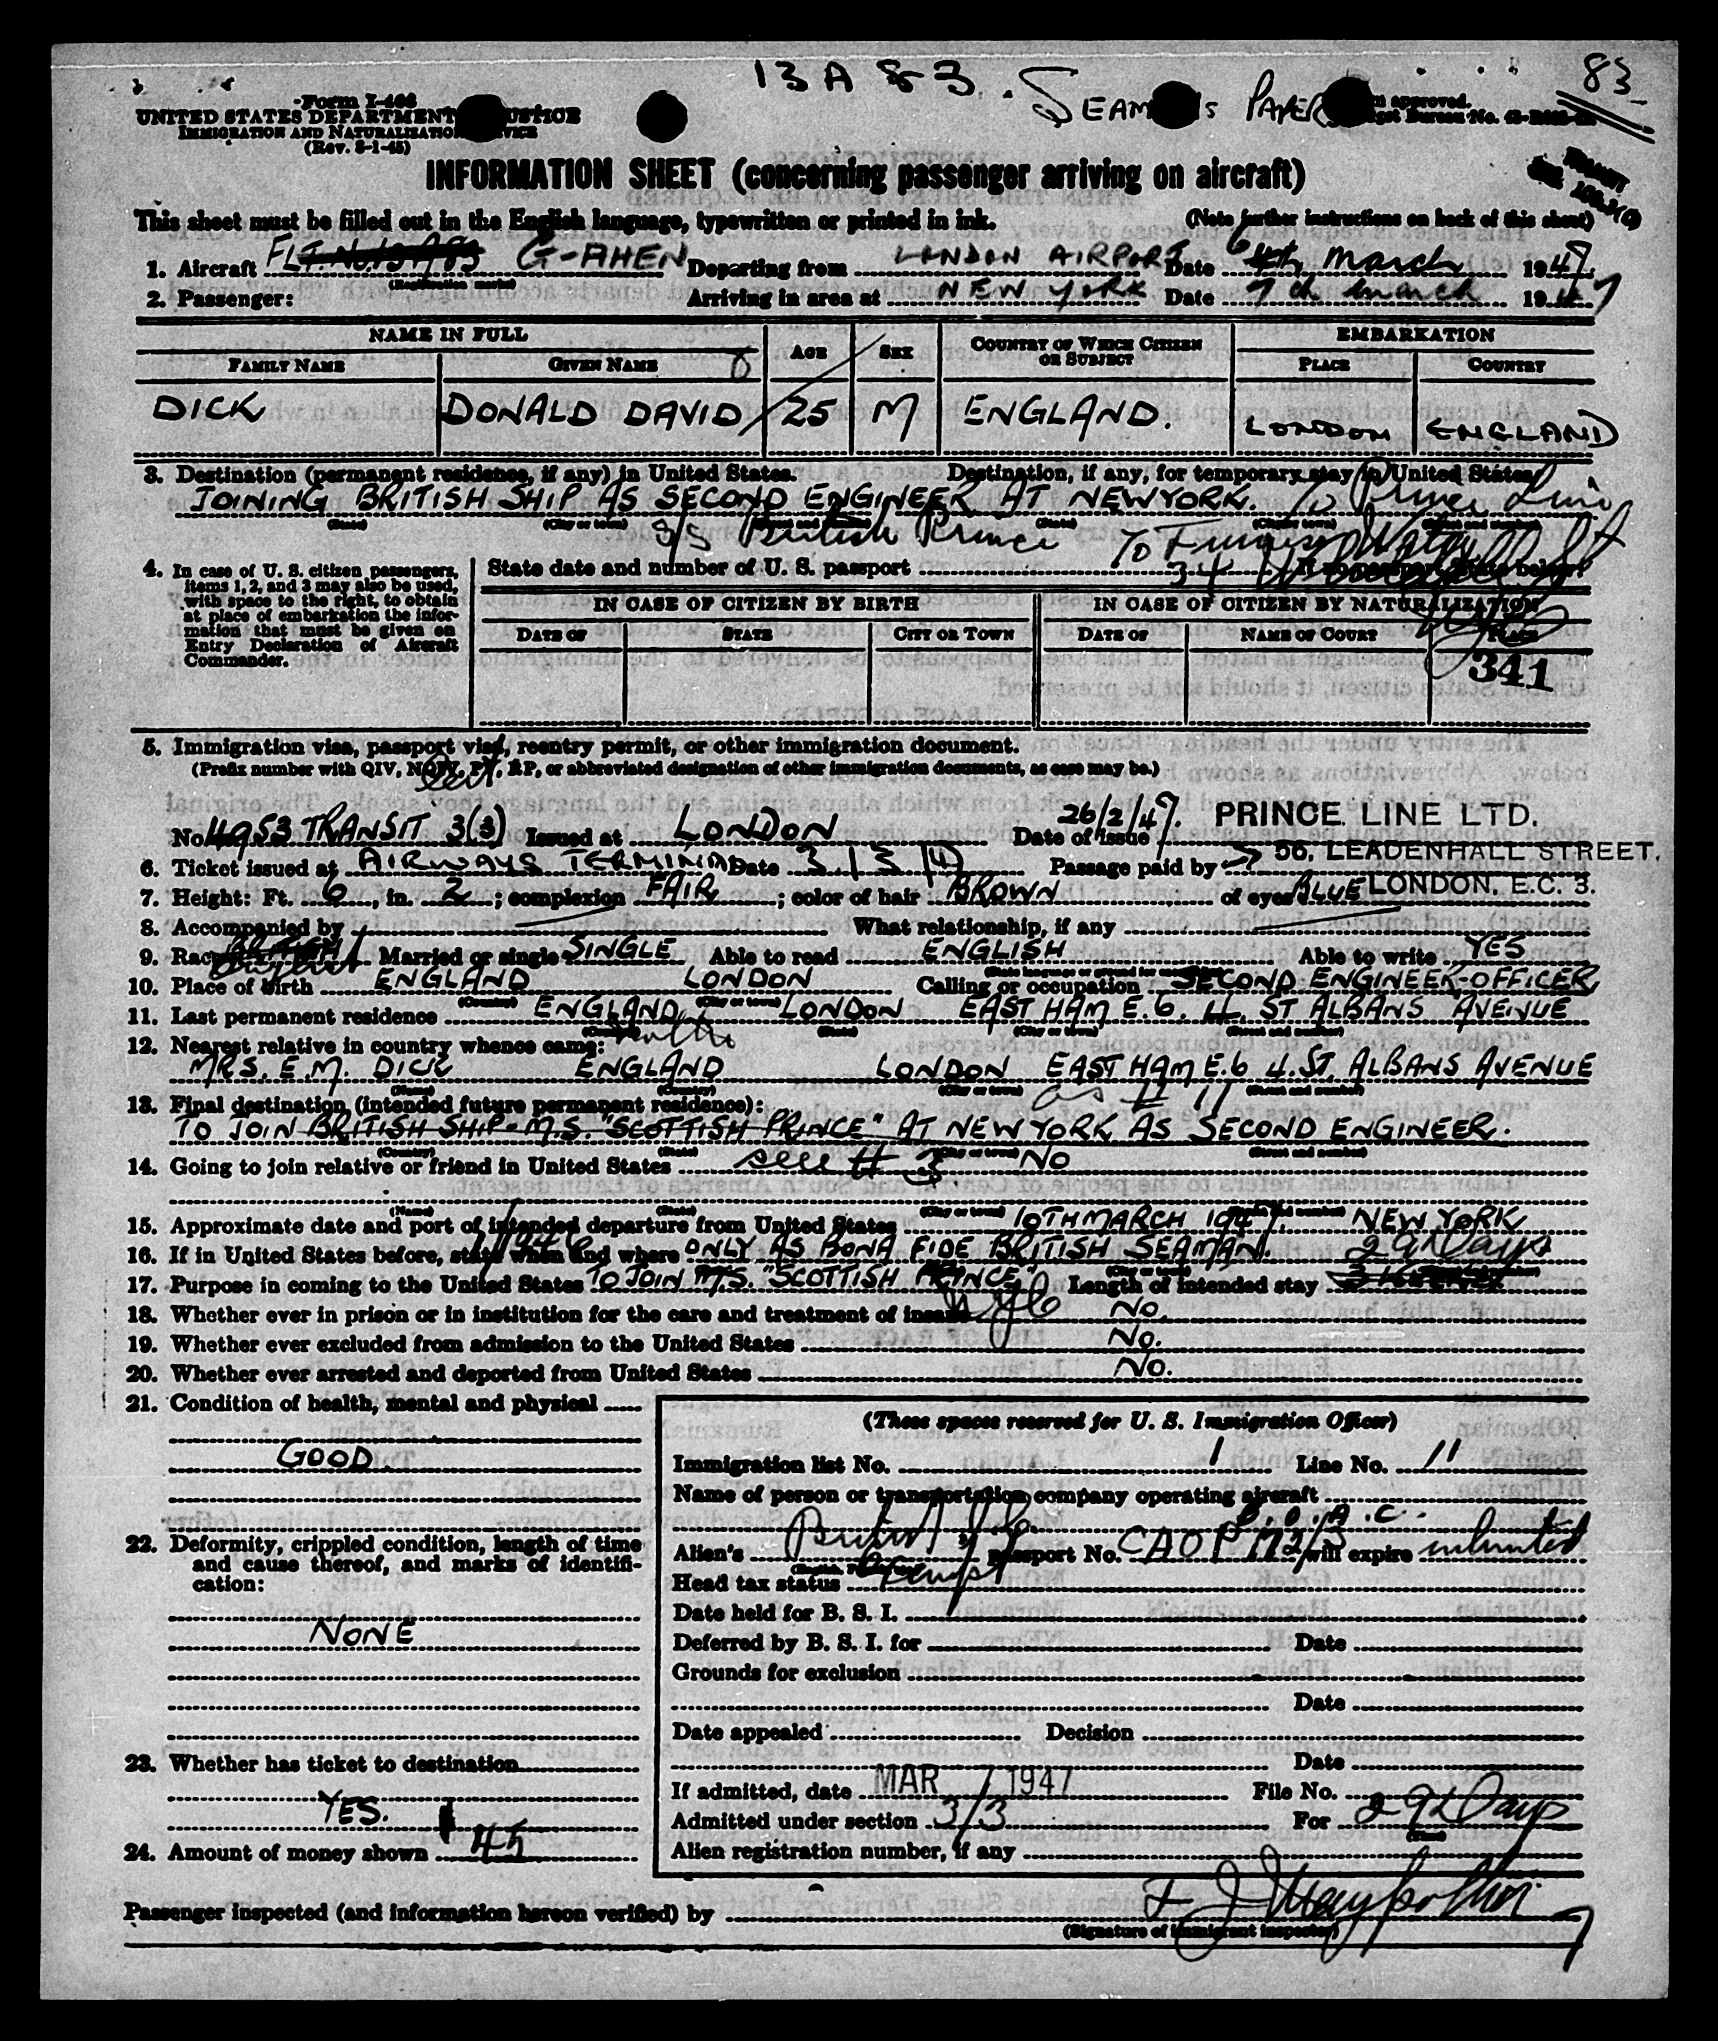 13A83. SEAMAN'S PAPERS 83
Form I-466
UNITED STATES DEPARTMENT OF JUSTICE
IMMIGRATION AND NATURALIZATION SERVICE
(Rev. 8-1-45)
Form approved.
Budget Bureau No.
INFORMATION SHEET (concerning passenger arriving on aircraft)
This sheet must be filled out in the English language, typewritten or printed in ink. (Note further instructions on back of this sheet)
1. Aircraft FLT. No. 13A83 G-AHEN Departing from LONDON AIRPORT Date 6 4th March 1947
(Registration marks)
2. Passenger: Arriving in area at NEW YORK Date 7th March 1947
NAME IN FULL AGE SEX COUNTRY OF WHICH CITIZEN OR SUBJECT EMBARKATION
FAMILY NAME GIVEN NAME PLACE COUNTRY
DICK DONALD DAVID 25 M ENGLAND. LONDON ENGLAND
3. Destination (permanent residence, if any) in United States. Destination, if any, for temporary stay in United States
JOINING BRITISH SHIP AS SECOND ENGINEER AT NEW YORK. To Prince Line
(State) (City or town) (Street and number) (State) (City or town) (Street and number)
S/S British Prince To Furness
4. In case of U. S. citizen passengers, items 1, 2, and 3 may also be used, with space to the right, to obtain at place of embarkation the information that must be given on Entry Declaration of Aircraft Commander.
State date and number of U. S. passport 34 If no passport, state below:
IN CASE OF CITIZEN BY BIRTH IN CASE OF CITIZEN BY NATURALIZATION
DATE OF STATE CITY OR TOWN DATE OF NAME OF COURT PLACE
341
5. Immigration visa, passport visa, reentry permit, or other immigration document.
(Prefix number with QIV, NQIV, PV, RP, or abbreviated designation of other immigration documents, as case may be.)
No. 4953 TRANSIT 3(3) Issued at LONDON Date of issue 26/2/47. PRINCE LINE LTD.
6. Ticket issued at AIRWAYS TERMINAL Date 3/3/47 Passage paid by 56, LEADENHALL STREET.
7. Height: Ft. 6, in. 2; complexion FAIR; color of hair BROWN of eyes BLUE LONDON, E.C. 3.
8. Accompanied by What relationship, if any
9. Race BRITISH English Married or single SINGLE Able to read ENGLISH Able to write YES
10. Place of birth ENGLAND LONDON Calling or occupation SECOND ENGINEER-OFFICER
(Country) (City or town)
11. Last permanent residence ENGLAND LONDON EAST HAM E.6. 4. ST ALBANS AVENUE
(Country) (State) (City or town) (Street and number)
12. Nearest relative in country whence came: mother
MRS. E.M. DICK ENGLAND LONDON EAST HAM E.6 4. ST. ALBANS AVENUE
(Name) (Country) (City or town) (Street and number)
as # 11
13. Final destination (intended future permanent residence):
TO JOIN BRITISH SHIP-M.S. "SCOTTISH PRINCE" AT NEW YORK AS SECOND ENGINEER.
(Country) (State) (City or town) (Street and number)
14. Going to join relative or friend in United States see # 3. NO
(Name) (State) (City or town) (Street and number)
15. Approximate date and port of intended departure from United States 10TH MARCH 1947. NEW YORK
16. If in United States before, state when and where 1946 ONLY AS BONA FIDE BRITISH SEAMAN. 29 Days
17. Purpose in coming to the United States TO JOIN M.S. "SCOTTISH PRINCE" Length of intended stay
18. Whether ever in prison or in institution for the care and treatment of insane NO.
19. Whether ever excluded from admission to the United States NO.
20. Whether ever arrested and deported from United States NO.
21. Condition of health, mental and physical
GOOD.
22. Deformity, crippled condition, length of time and cause thereof, and marks of identification:
NONE
23. Whether has ticket to destination
YES.
24. Amount of money shown 45
(These spaces reserved for U. S. Immigration Officer)
Immigration list No. 1 Line No. 11
Name of person or transportation company operating aircraft
B.O.A.C.
Alien's British passport No. will expire unlimited
Head tax status Exempt
Date held for B. S. I.
Deferred by B. S. I. for Date
Grounds for exclusion
Date
Date appealed Decision
Date
If admitted, date MAR 7 1947 File No.
Admitted under section 3/3 For 29 Days
(Time)
Alien registration number, if any
Passenger inspected (and information hereon verified) by
(Signature of immigrant inspector)